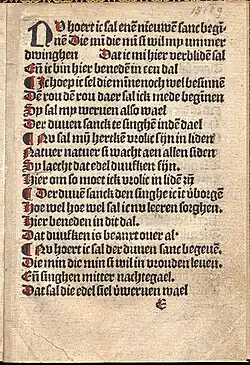 NV hoert ic sal enē nieuwē sanc begī-
nē Die mī die mī si wil my ummer
dwinghen Dat is mi hier verblidē sal
Eñ ic bin hier benedē in een dal
Ic hoep ic sel die minē noch wel besinnen
Dē rou dē rou daer sal ick mede beginnen
Hy sal my werven also wael
Der duuen sanck te singhē indē dael
Nv sal mī herckē vrolic sijn in lidē
Natuer natuer si wacht aen allen siden
Hy lacht dat edel duufken fijn.
Hier om so moet ick vrolic in lidē
Der duuē sanck den singhe ic īt vborgē
Hoe wel hoe wel sal ic nv leeren sorghen.
Hier beneden in dit dal.
Dat duufken is beanxt ouer al·
Nv hoert ic sal der duuen sanc begeuē.
Die min die min si wil in vrouden leuen.
Eñ singhen mitter nachtegael.
Dat sal die edel siel verwerven wael
E